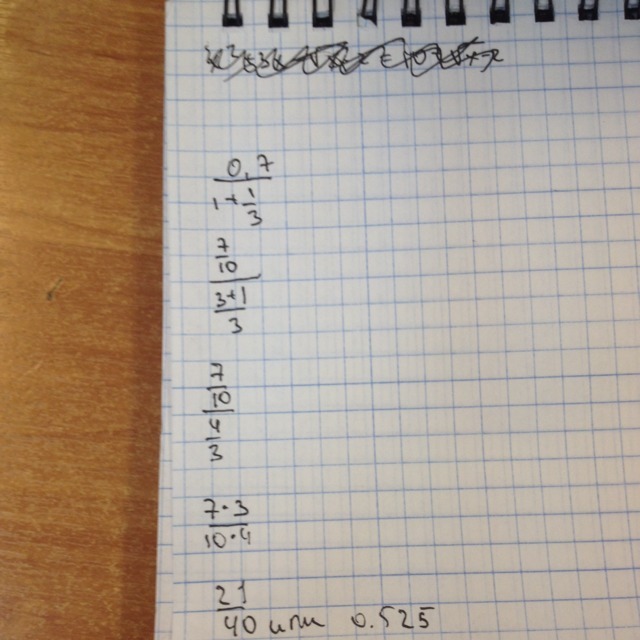 0,7
1+1
3
7
10
3+1
3
7
10
4
3
7·3
10·4
21
40 или 0.525